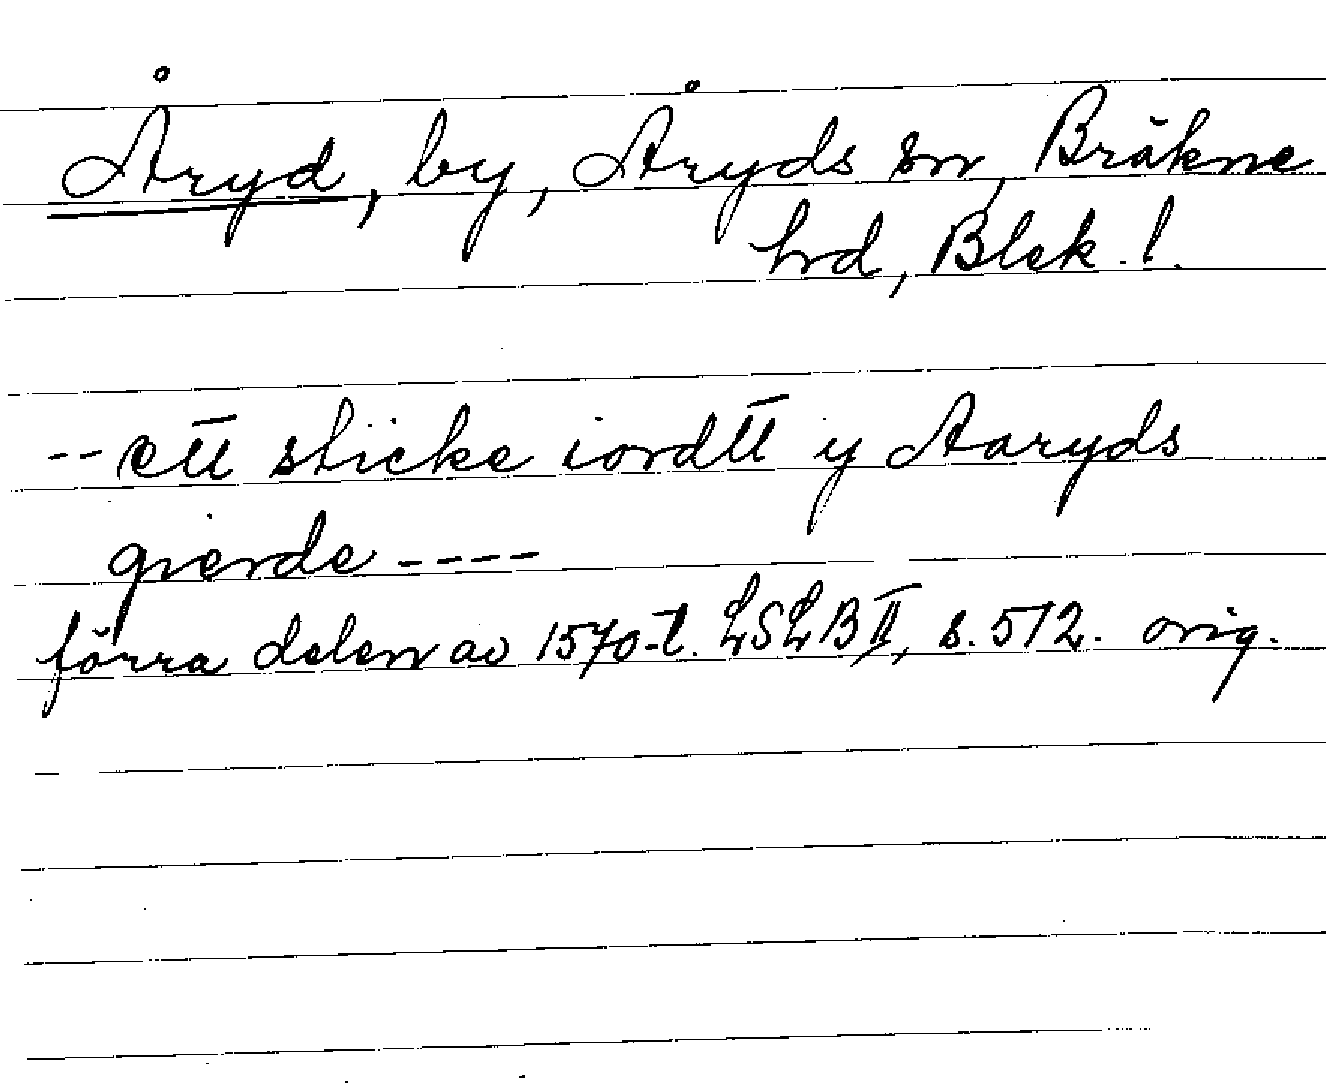 Åryd, by, Åryds sn, Bräkne
hrd, Blek. l.
-- ett stÿcke iordtt y Aaryds
gierde ----
förra delen av 1570-t. LSLB II, s. 572. orig.